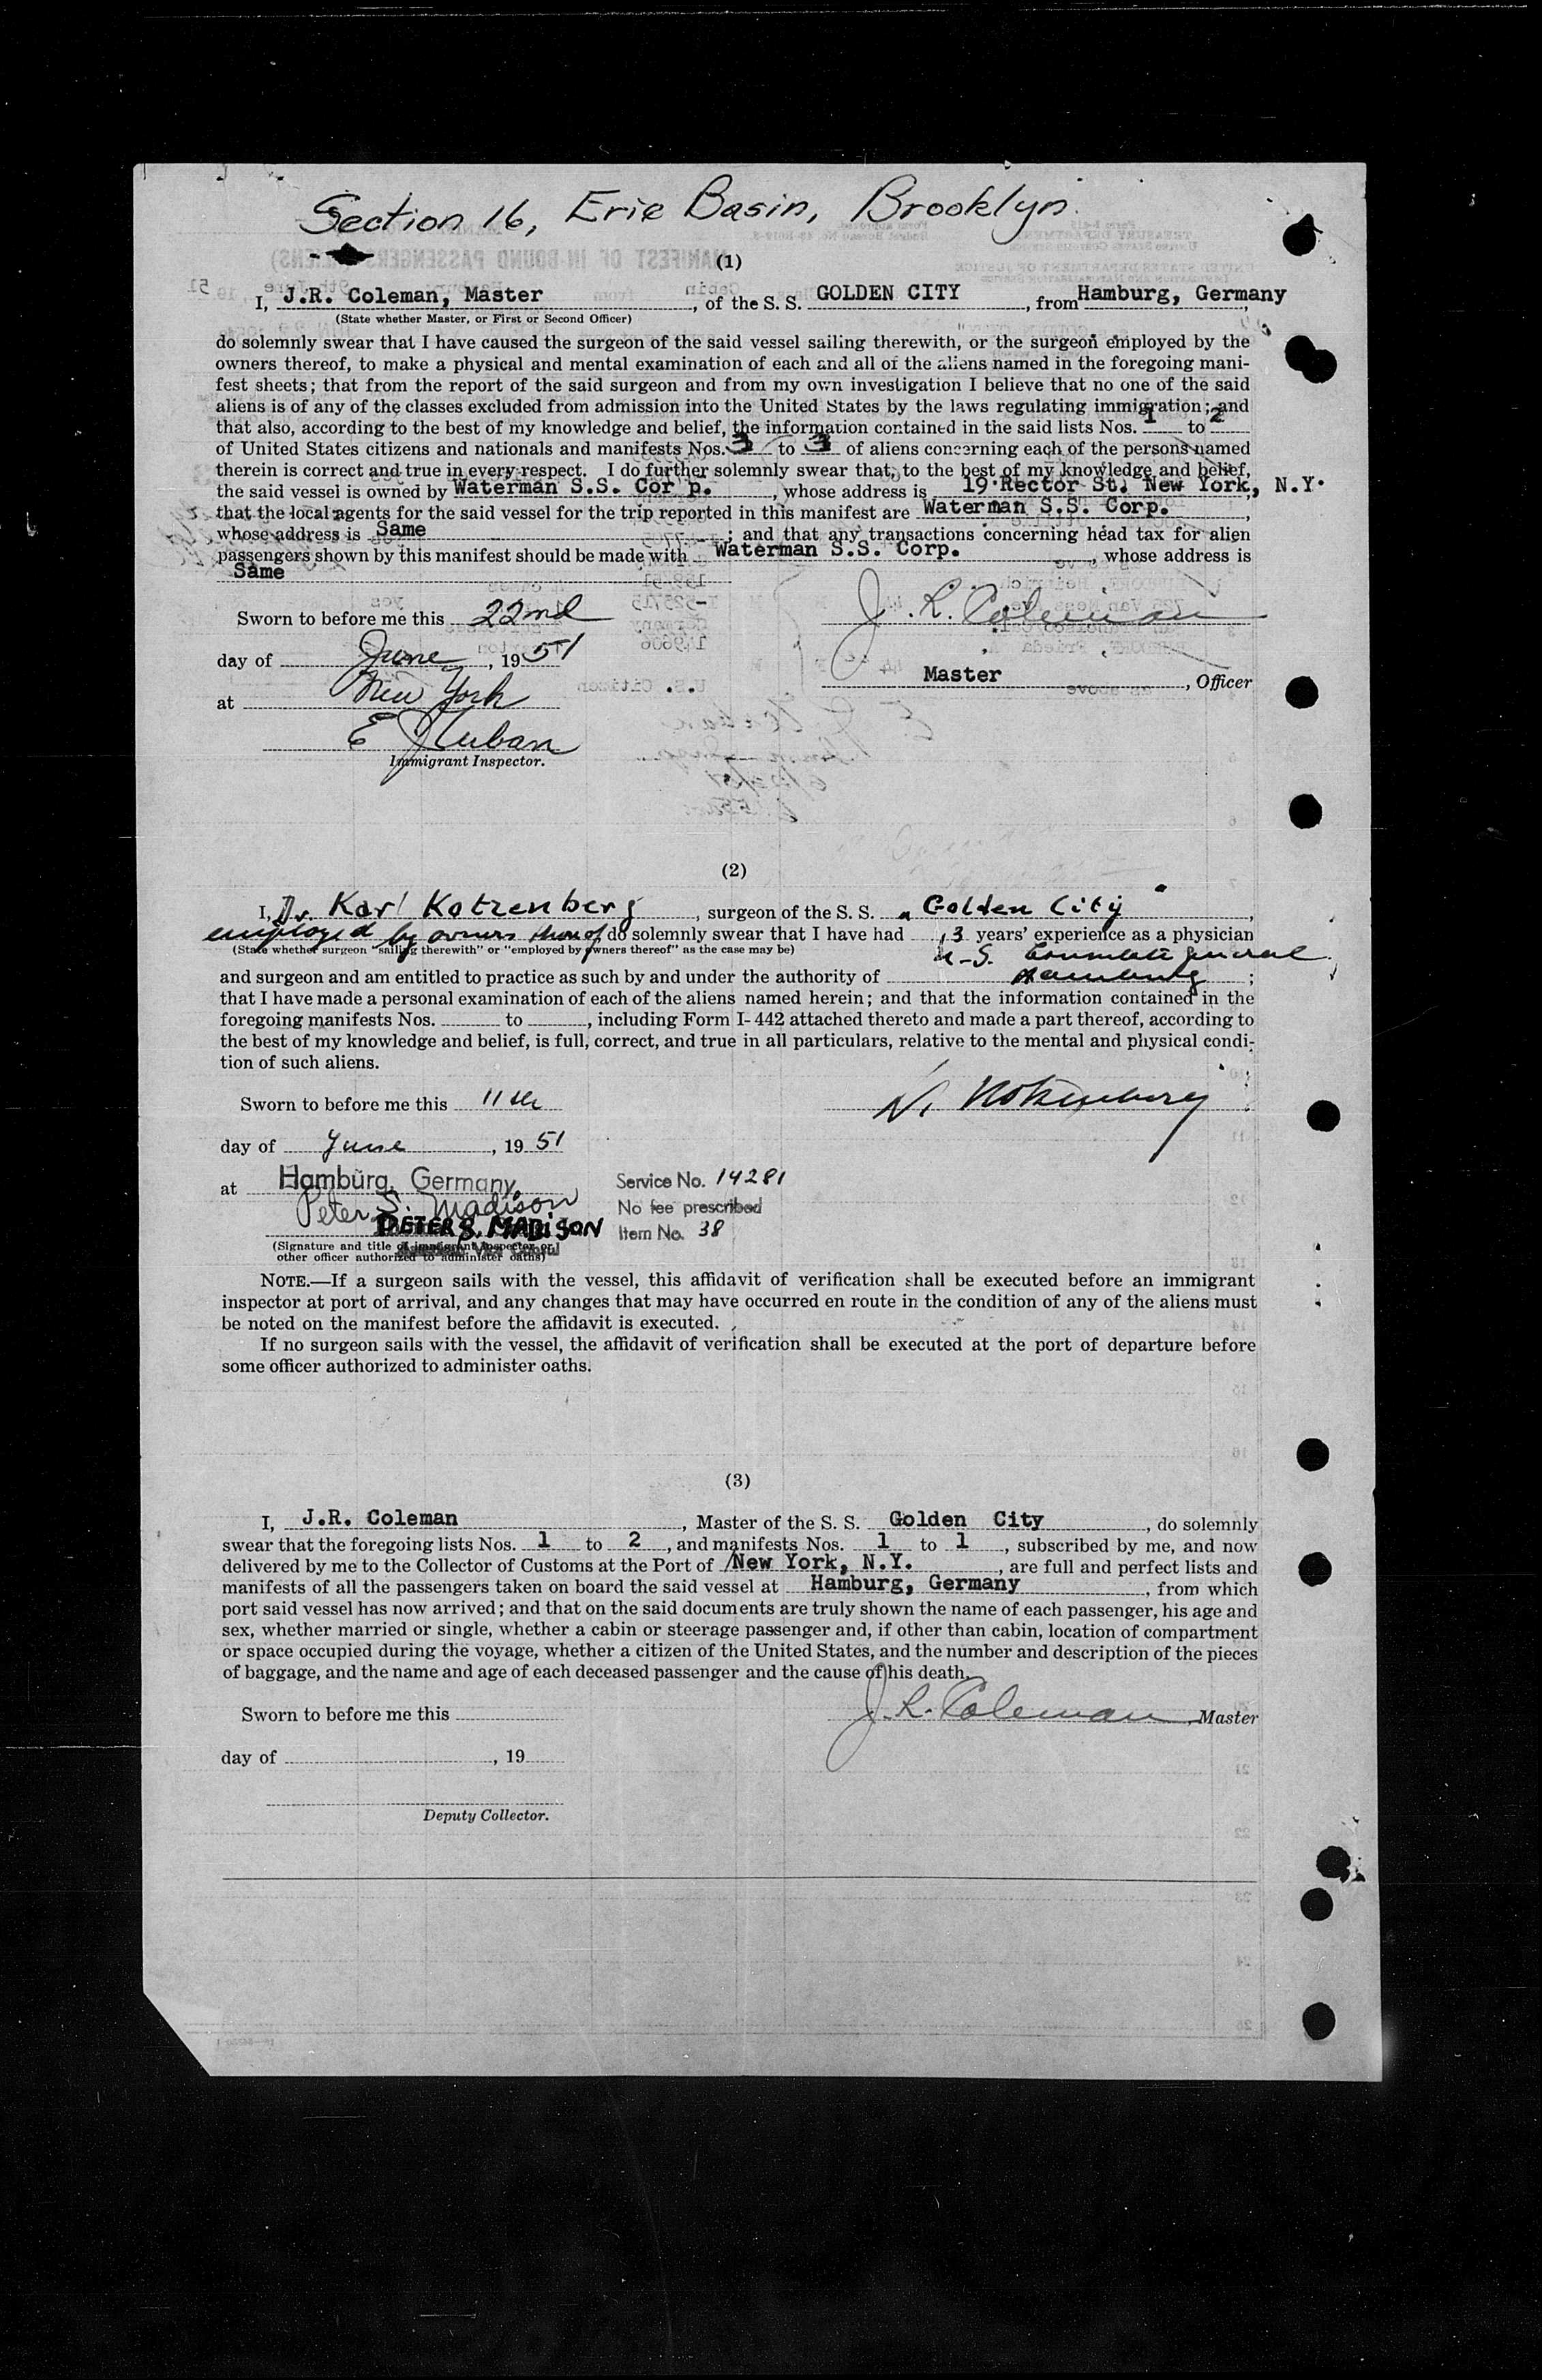 Section 16, Erie Basin, Brooklyn.
(1)
I, J.R. Coleman, Master, of the S. S. GOLDEN CITY, from Hamburg, Germany,
(State whether Master, or First or Second Officer)
do solemnly swear that I have caused the surgeon of the said vessel sailing therewith, or the surgeon employed by the
owners thereof, to make a physical and mental examination of each and all of the aliens named in the foregoing mani-
fest sheets; that from the report of the said surgeon and from my own investigation I believe that no one of the said
aliens is of any of the classes excluded from admission into the United States by the laws regulating immigration; and
that also, according to the best of my knowledge and belief, the information contained in the said lists Nos. 1 to 2
of United States citizens and nationals and manifests Nos. 3 to 3 of aliens concerning each of the persons named
therein is correct and true in every respect. I do further solemnly swear that, to the best of my knowledge and belief,
the said vessel is owned by Waterman S.S. Cor p., whose address is 19 Rector St. New York, N.Y.
that the local agents for the said vessel for the trip reported in this manifest are Waterman S.S. Corp.,
whose address is Same; and that any transactions concerning head tax for alien
passengers shown by this manifest should be made with Waterman S.S. Corp., whose address is
Same
Sworn to before me this 22nd
J. R. Coleman
day of June, 1951
Master, Officer
at New York
E J Urban
Immigrant Inspector.
(2)
I, Dr. Karl Kotzenberg, surgeon of the S. S. Golden City,
employed by owners thereof do solemnly swear that I have had 13 years' experience as a physician
(State whether surgeon "sailing therewith" or "employed by owners thereof" as the case may be)
U-S. Consulate General
and surgeon and am entitled to practice as such by and under the authority of Hamburg;
that I have made a personal examination of each of the aliens named herein; and that the information contained in the
foregoing manifests Nos. to, including Form I-442 attached thereto and made a part thereof, according to
the best of my knowledge and belief, is full, correct, and true in all particulars, relative to the mental and physical condi-
tion of such aliens.
Sworn to before me this 11th
Kotzenberg
day of June, 1951
at Hamburg, Germany.
Service No. 14281
Peter S. Madison
No fee prescribed
PETER S. MADISON
Item No. 38
(Signature and title of immigrant inspector or
other officer authorized to administer oaths)
NOTE.—If a surgeon sails with the vessel, this affidavit of verification shall be executed before an immigrant
inspector at port of arrival, and any changes that may have occurred en route in the condition of any of the aliens must
be noted on the manifest before the affidavit is executed.
If no surgeon sails with the vessel, the affidavit of verification shall be executed at the port of departure before
some officer authorized to administer oaths.
(3)
I, J.R. Coleman, Master of the S. S. Golden City, do solemnly
swear that the foregoing lists Nos. 1 to 2, and manifests Nos. 1 to 1, subscribed by me, and now
delivered by me to the Collector of Customs at the Port of New York, N.Y., are full and perfect lists and
manifests of all the passengers taken on board the said vessel at Hamburg, Germany, from which
port said vessel has now arrived; and that on the said documents are truly shown the name of each passenger, his age and
sex, whether married or single, whether a cabin or steerage passenger and, if other than cabin, location of compartment
or space occupied during the voyage, whether a citizen of the United States, and the number and description of the pieces
of baggage, and the name and age of each deceased passenger and the cause of his death.
Sworn to before me this
J. R. Coleman, Master
day of, 19
Deputy Collector.